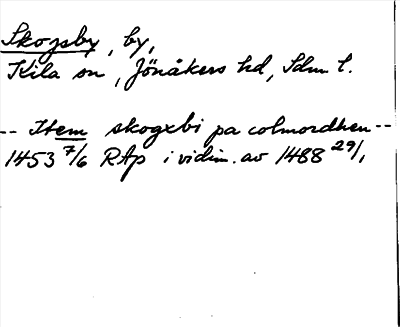 Skogsby, by,
Kila sn, Jönåkers hd, Sdm l.
-- Item skogxbi pa colmordhen --
1453 7/6 RAp i vidim. av 1488 29/1